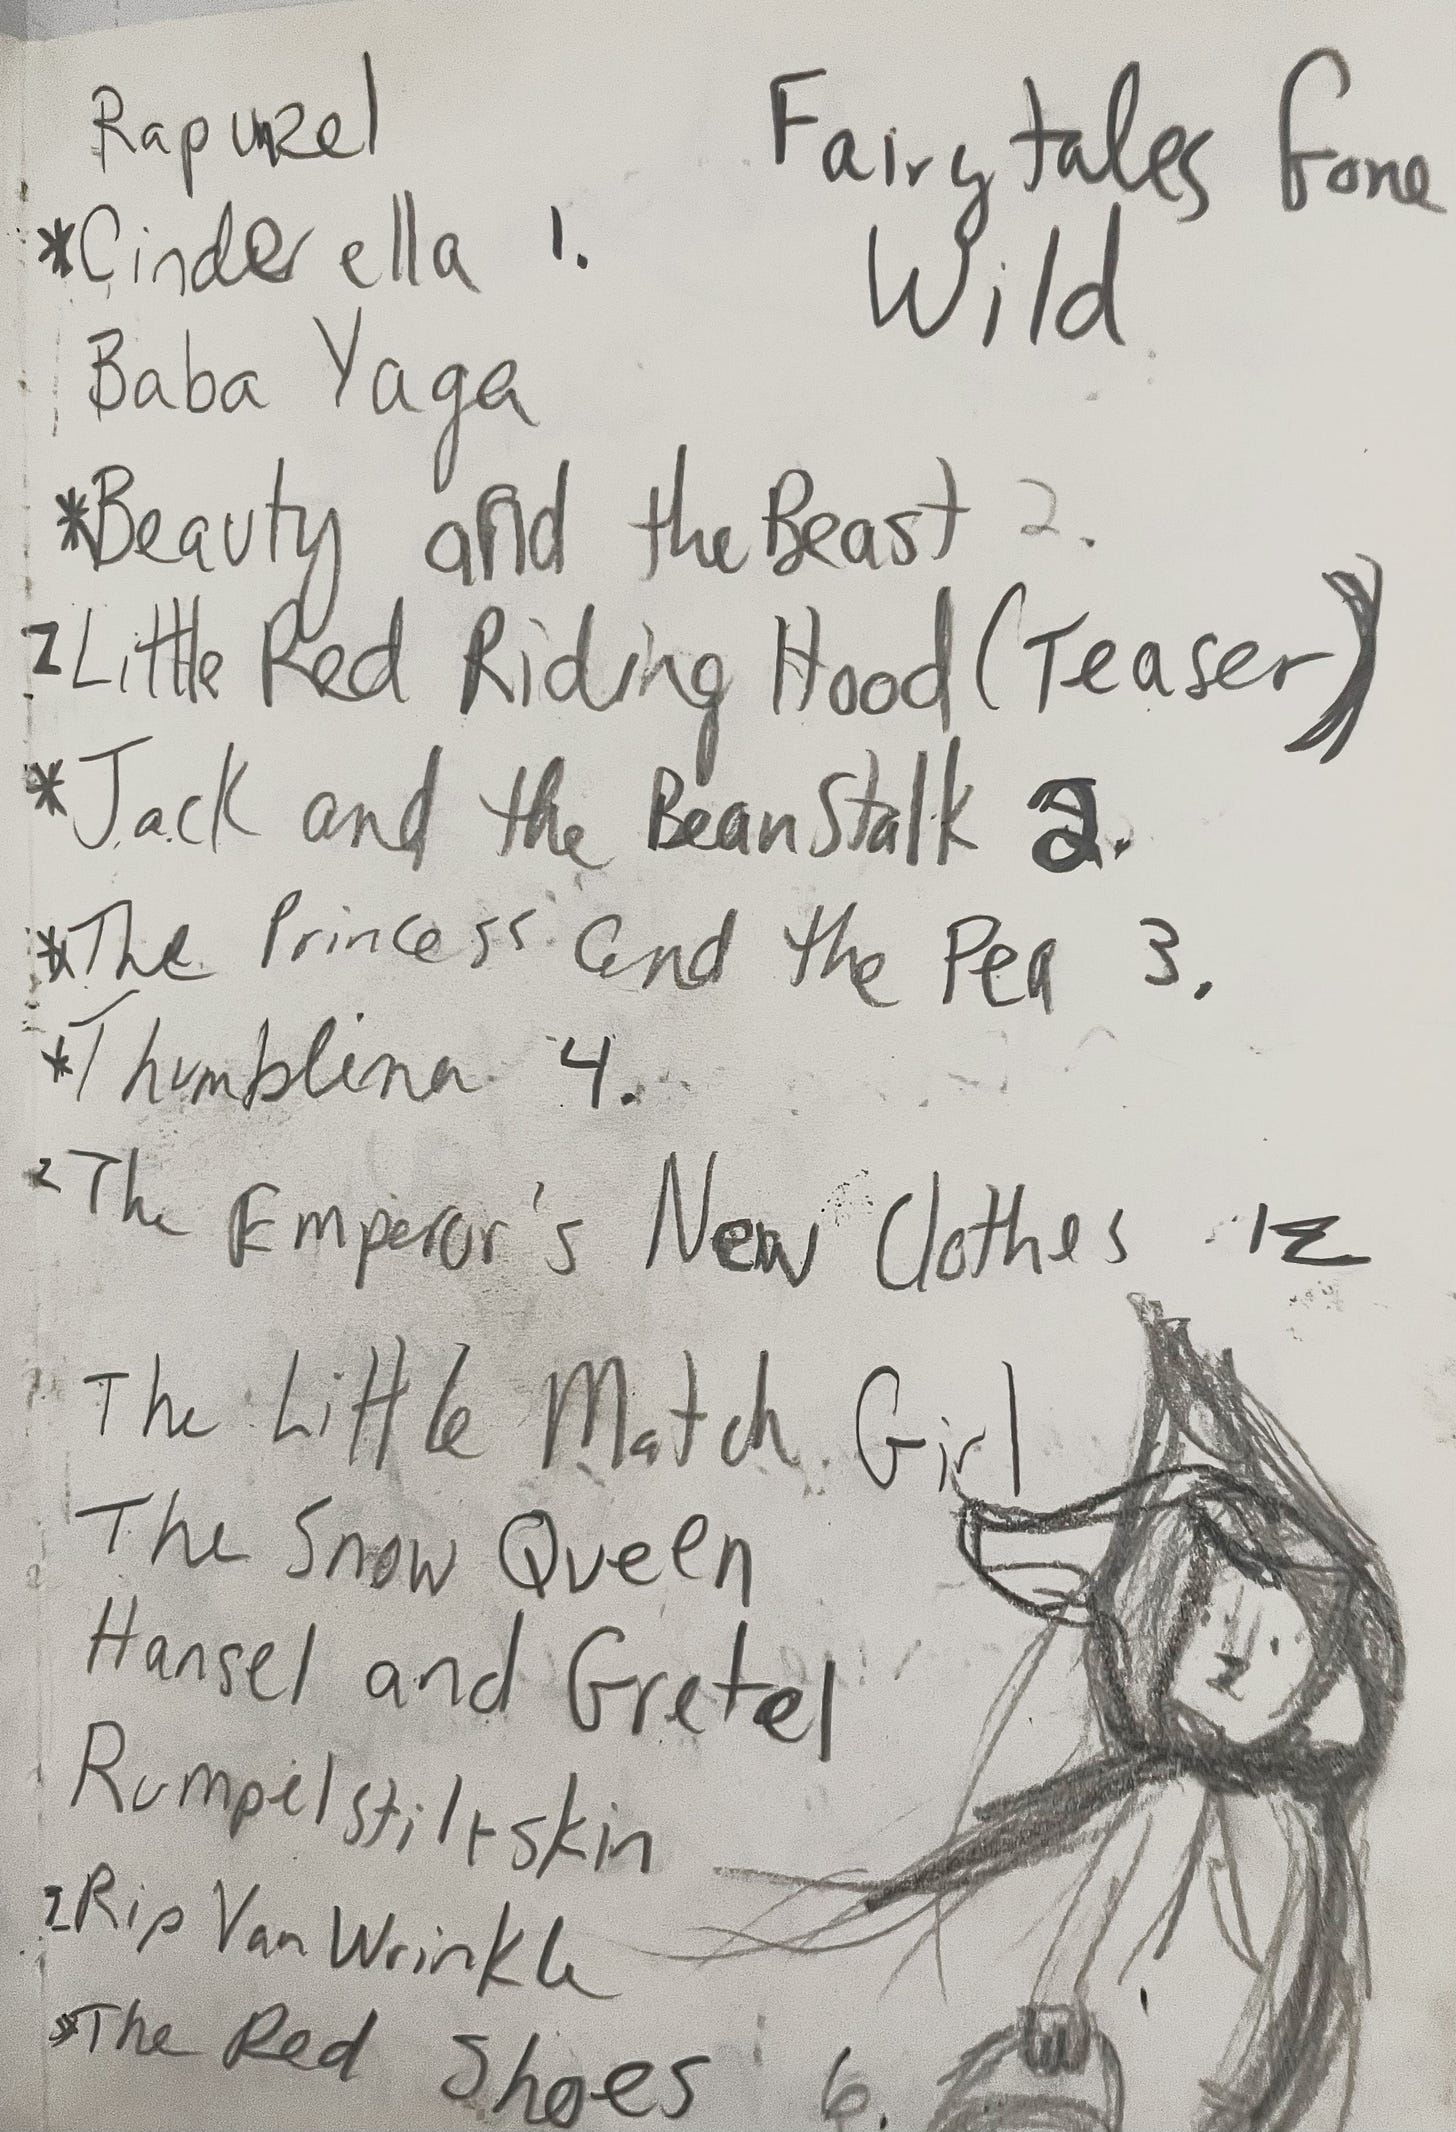 Rapuzel
Fairytales Gone
Wild
*Cinderella 1.
Baba Yaga
*Beauty and the Beast 2.
2 Little Red Riding Hood (Teaser)
*Jack and the BeanStalk 2.
*The Princess and the Pea 3.
*Thumblina 4.
2 The Emperor's New Clothes 12
The Little Match Girl
The Snow Queen
Hansel and Gretel
Rumpelstiltskin
2 Rip Van Wrinkle
*The Red Shoes 6.